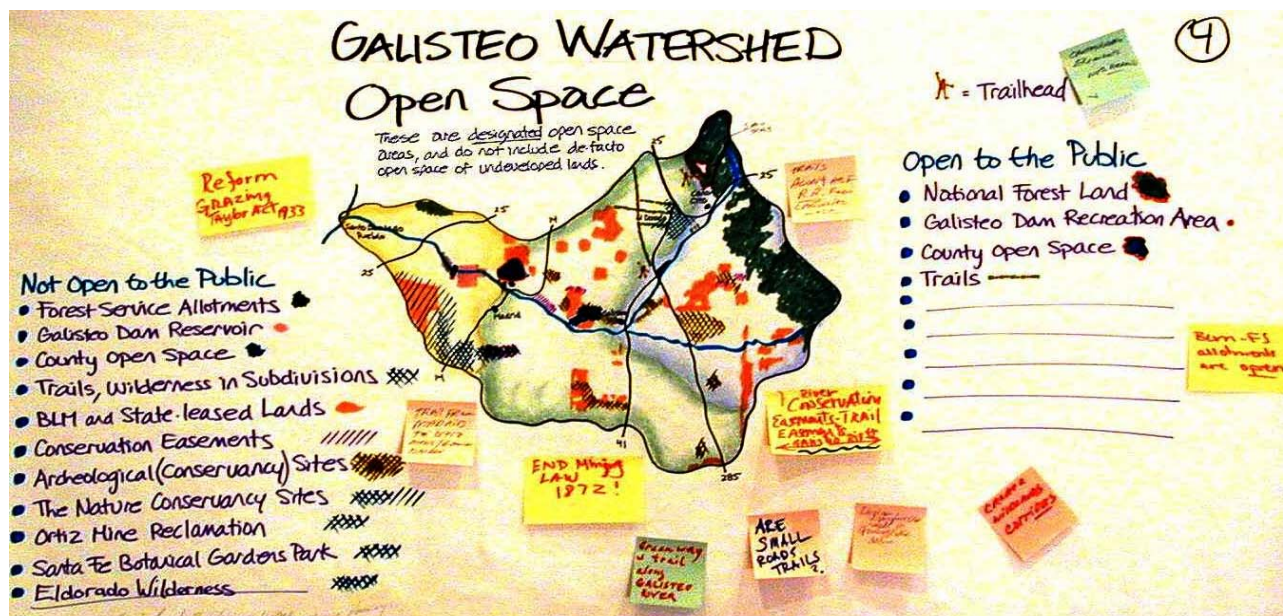 GALISTEO WATERSHED
Open Space
These are designated open space
areas, and do not include de-facto
open space of undeveloped lands.
4
= Trailhead
Reform
GRAZING
Taylor Act 1933
Open to the Public
National Forest Land
Galisteo Dam Recreation Area
County Open Space
Trails
Not Open to the Public
Forest Service Allotments
Galisteo Dam Reservoir
County Open Space
Trails, Wilderness in Subdivisions
BLM and State-leased Lands
Conservation Easements
Archeological (Conservancy) Sites
The Nature Conservancy Sites
Ortiz Mine Reclamation
Santa Fe Botanical Gardens Park
Eldorado Wilderness
Santo Domingo
Pueblo
25
25
25
25
14
14
Madrid
41
285
TRAILS
TRAIL FROM
MADRID
END Mining
LAW
1872!
River
Conservation
Easments-TRAIL
BLM-FS
allotments
are open
Greenway
trail
along
GALISTEO
RIVER
ARE
SMALL
ROADS
TRAILS?
CREATE
WILDLANDS